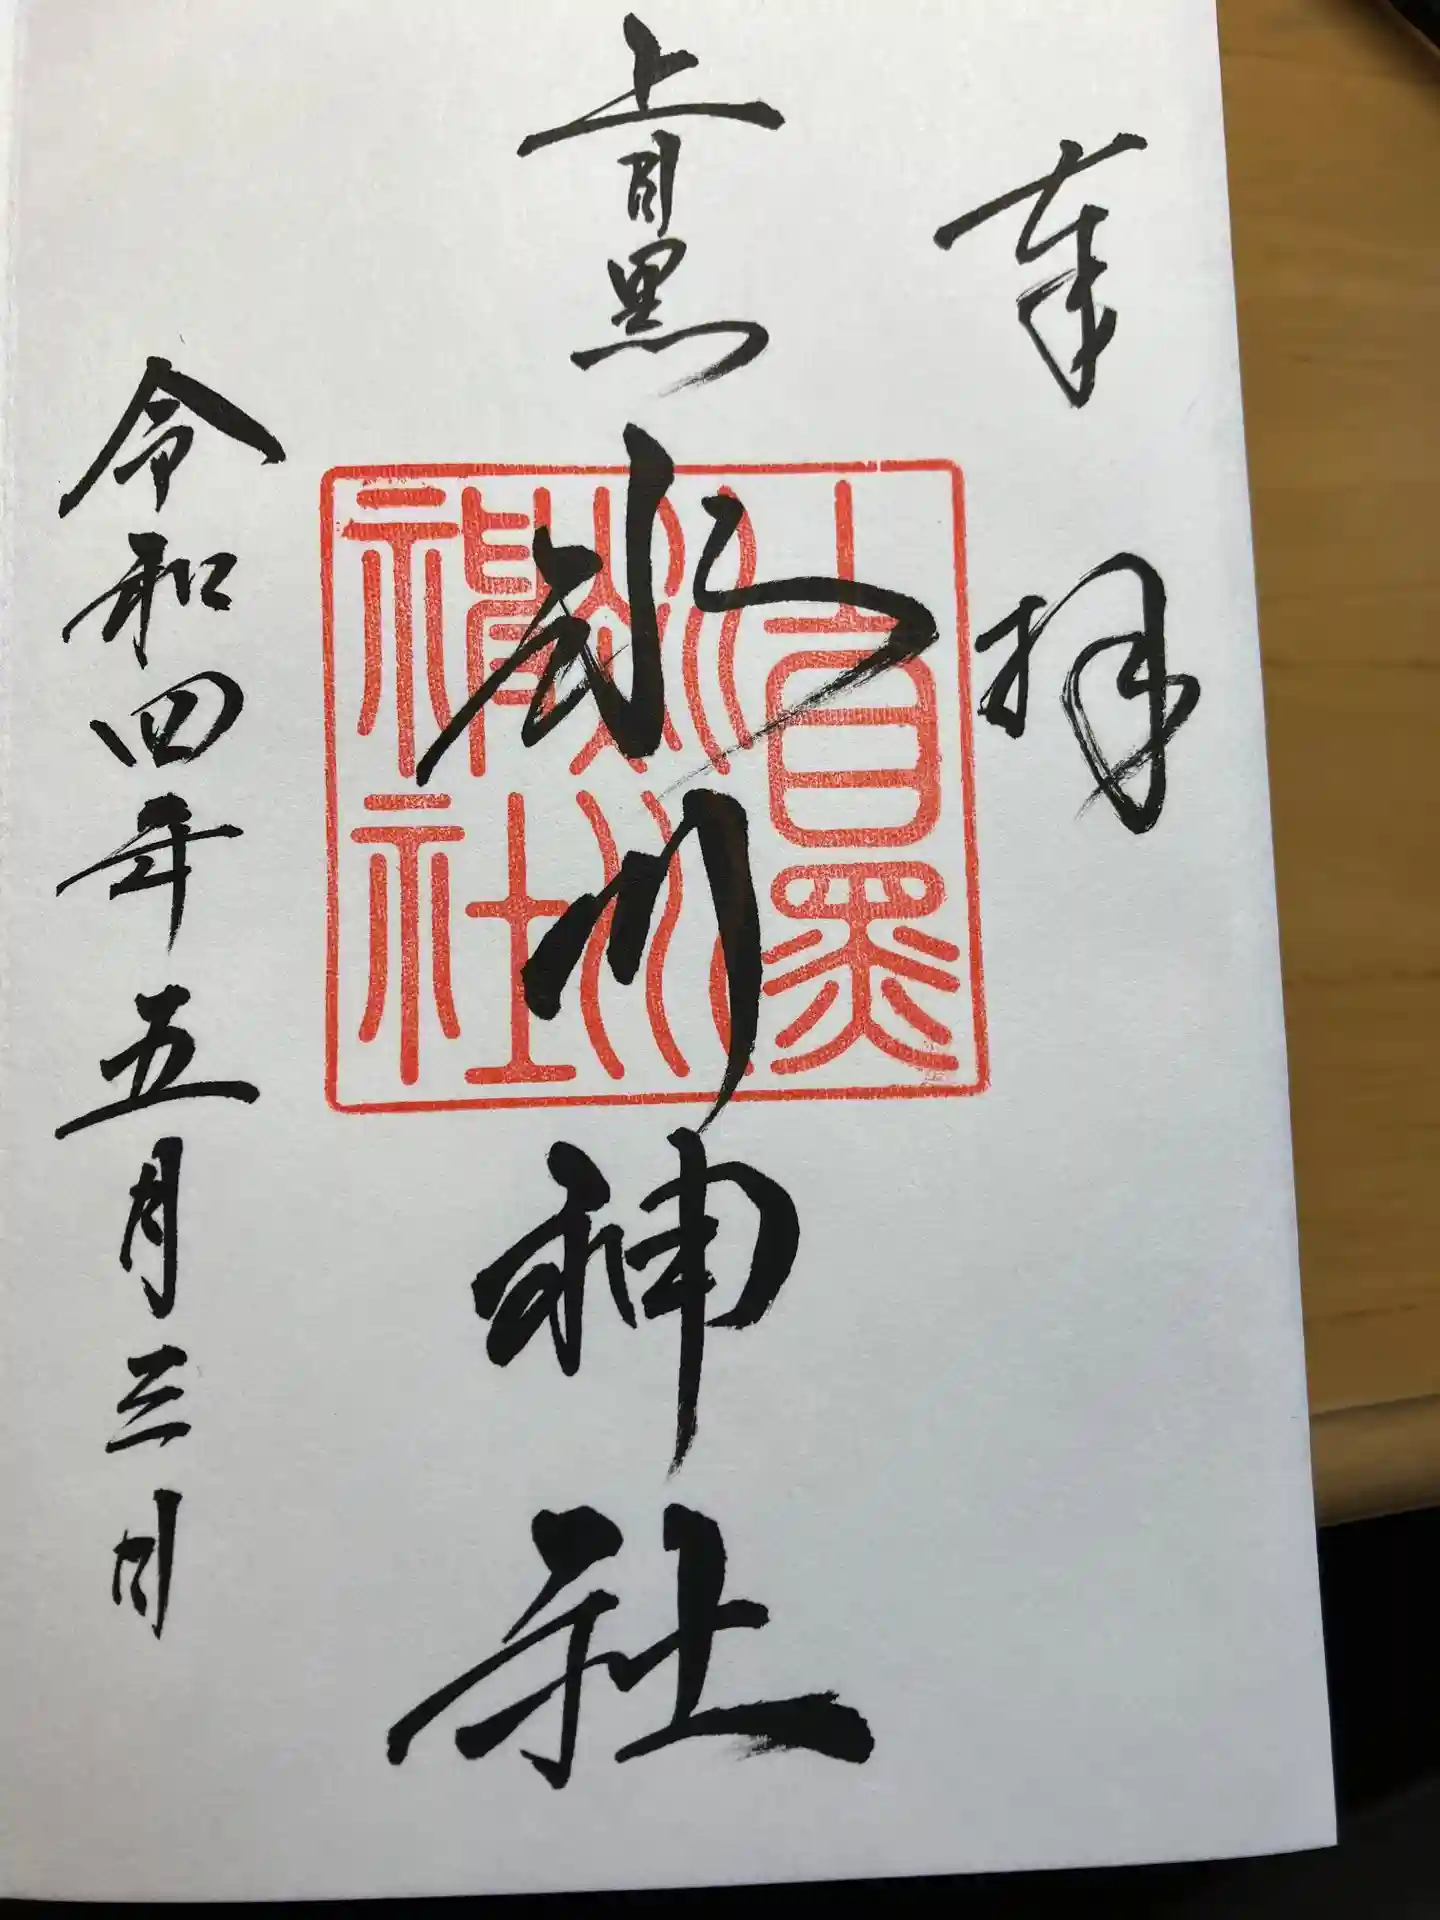 奉拝
上目黒氷川神社
上目黒
氷川
神社
令和四年五月三日